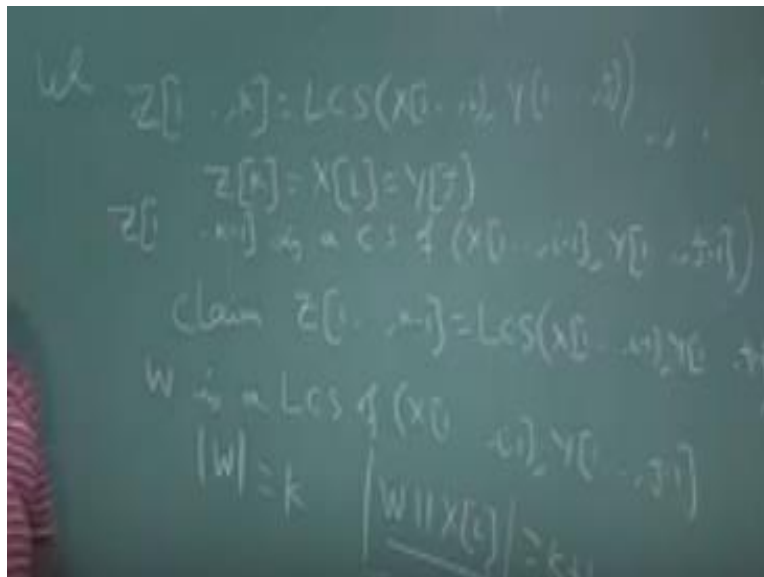 Z[1 .. k] = LCS(X[1 .. i], Y[1 .. j])
Z[k] = X[i] = Y[j]
Z[1 .. k-1] is a CS of (X[1 .. i-1], Y[1 .. j-1])
Claim Z[1 .. k-1] = LCS(X[1 .. i-1], Y[1
W is a LCS of (X[1 .. i-1], Y[1 .. j-1]
|W| ≥ k |W||X[i]| ≥ k+1